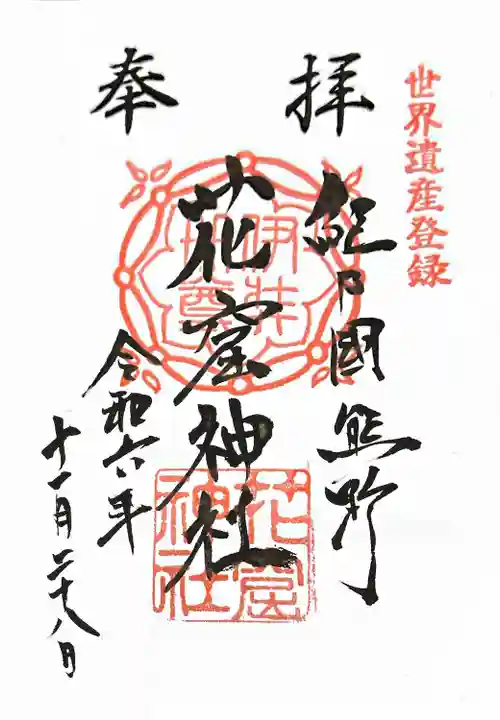 世界遺産登録
奉拝
紀日國熊野
花窟神社
令和六年
十一月二十八日
伊弉冊尊
花窟神社